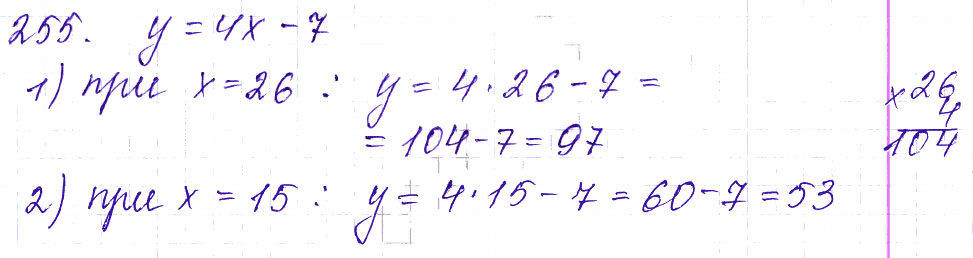 255. y = 4x - 7
1) при x = 26 : y = 4 · 26 - 7 =
= 104 - 7 = 97
2) при x = 15 : y = 4 · 15 - 7 = 60 - 7 = 53
× 26
4
104